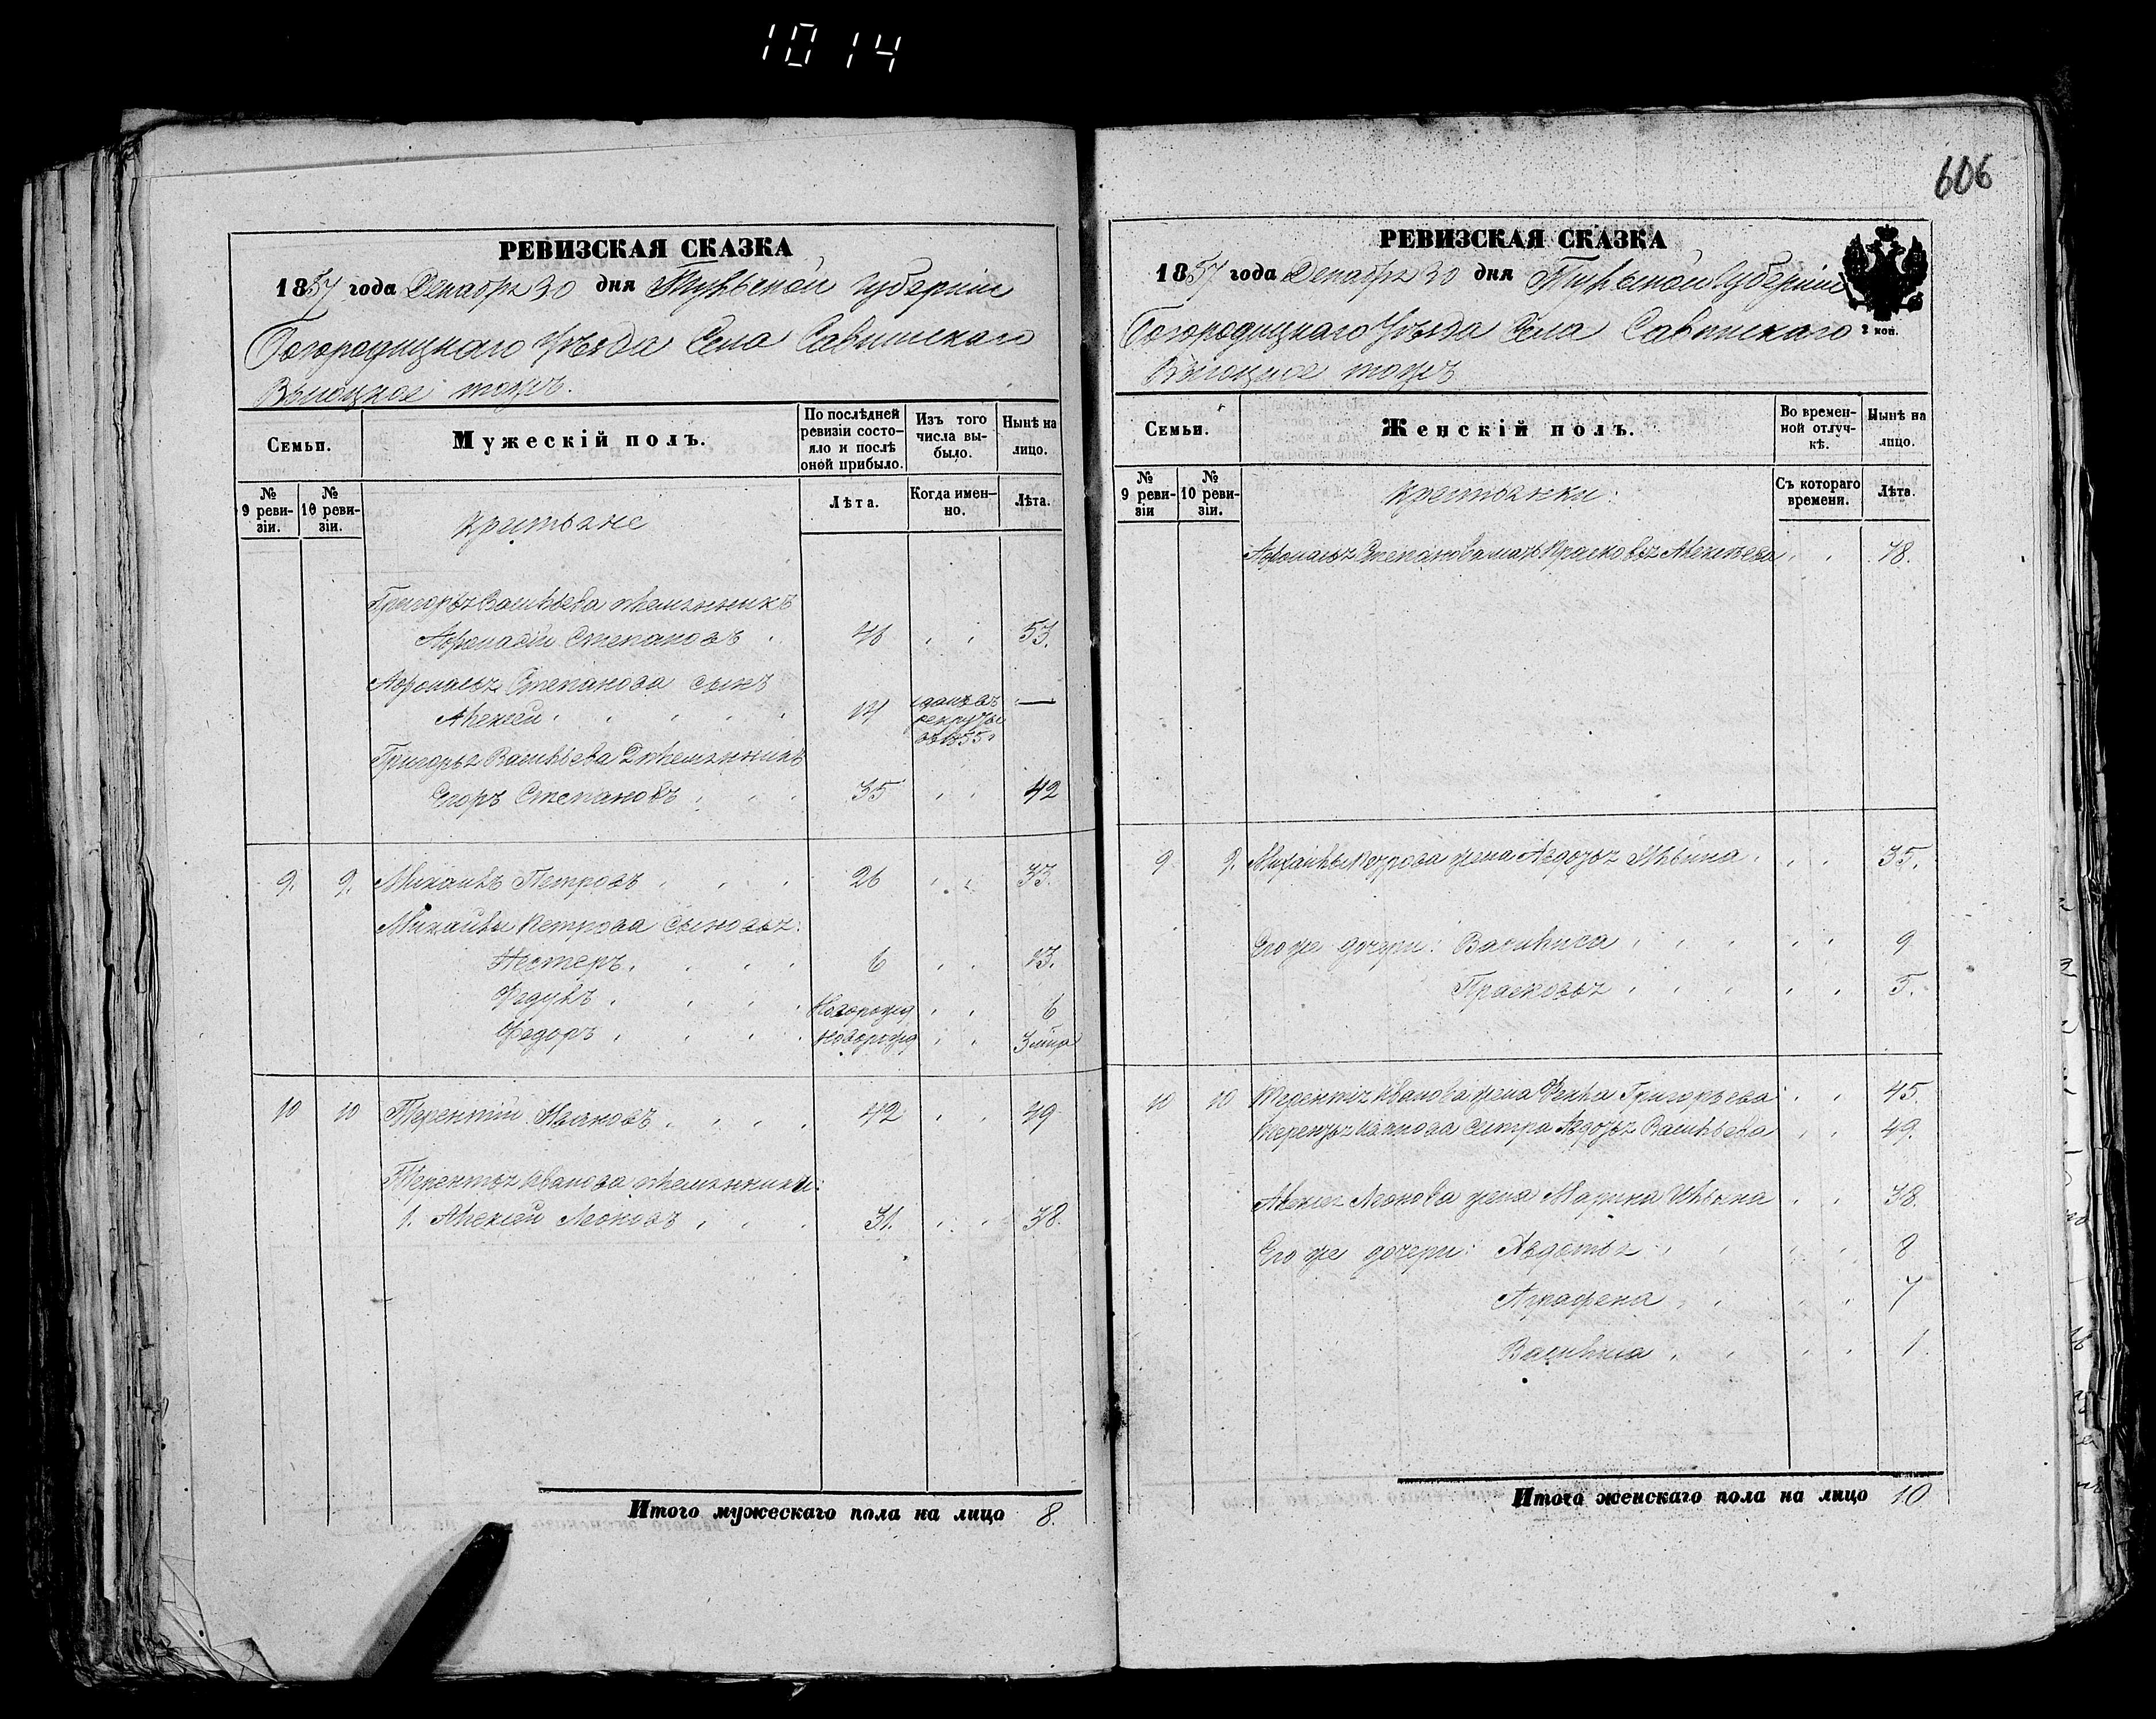 1014
606
РЕВИЗСКАЯ СКАЗКА
1857 года Декабря 30 дня Тульской Губернiи
Богородицкаго Уѣзда Села Савинскаго
тожъ.
Семьи.
Мужескiй полъ.
По послѣдней ревизiи состояло и послѣ оной прибыло.
Изъ того числа выбыло.
Нынѣ на лицо.
№ 9 ревизiи.
№ 10 ревизiи.
Крестьяне
Лѣта.
Когда именно.
Лѣта.
Григорья Васильева племянникъ
Афонасiй Степановъ 46 53.
Афонасья Степанова сынъ
Алексѣй 14 сданъ въ рекруты въ 1855 г —
Григорья Васильева 2 племянникъ
Егоръ Степановъ 35 42
9. 9. Михаилъ Петровъ 26 33.
Михайлы Петрова сыновья:
Нестеръ 6 13.
Федулъ Новорожд 6
Федоръ Новорожд 3 мѣца
10 10 Терентiй Ивановъ 42 49
Терентья Иванова племянники:
1. Алексѣй Леоновъ 31. 38.
Итого мужескаго пола на лицо 8.
РЕВИЗСКАЯ СКАЗКА
1857 года Декабря 30 дня Тульской Губернiи
Богородицкаго Уѣзда Села Савинскаго
тожъ
2 коп.
Семьи.
Женскiй полъ.
Во временной отлучкѣ.
Нынѣ на лицо.
№ 9 ревизiи
№ 10 ревизiи.
Крестьянки:
Съ котораго времени.
Лѣта.
Афонасья Степанова мать Прасковья Алексѣева 78.
9 9. Михайлы Петрова жена Авдотья Ильина 35.
Его же дочери: Василиса 9
Прасковья 5.
10 10 Терентья Иванова жена Фекла Григорьева 45.
Терентья Иванова сестра Авдотья Васильева 49.
Алексѣя Леонова жена Марина Ильина 38.
Его же дочери: Авдотья 8
Аграфена 7
Василиса 1.
Итого женскаго пола на лицо 10